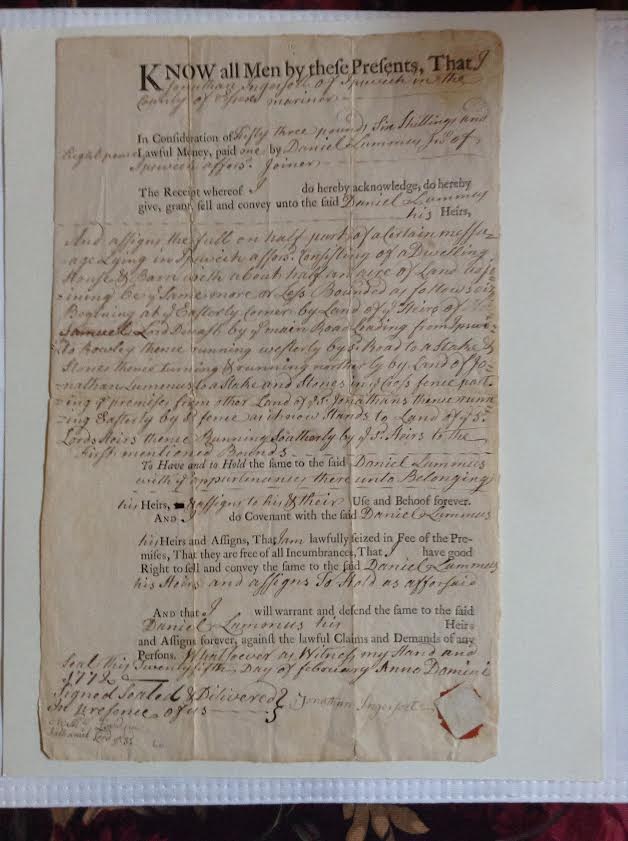 KNOW all Men by these Presents, That I
Jonathan Ingersoll of Ipswich in the
County of Essex mariner
In Consideration of Fifty three pounds Six Shillings and
Eight pence Lawful Money, paid me by Daniel Lummus Jnr of
Ipswich affors. Joiner
The Receipt whereof I do hereby acknowledge, do hereby
give, grant, sell and convey unto the said Daniel Lummus
his Heirs,
And assigns the full on half part of a Certain messu=
=age Lying in Ipswich affors. Consisting of a Dwelling
House & Barn with about half an acre of Land
=ining be ye Same more or Less Bounded as follows viz
Begining at ye Easterly Corner by Land of ye Heirs of
Samuel Lord by ye main Road Leading from Ipswi=
to Rowley thence running westerly by sd. Road to a Stake &
Stones thence turning & running northerly by Land of Jo=
=nathan Lummus to a Stake and Stones in ye Cross fence part=
=ing ye premises from other Land of sd. Jonathans thence runn=
=ing Easterly by sd. fence as it now Stands to Land of ye sd.
Lords Heirs thence Running Southerly by ye sd. Heirs to the
First mentioned Bounds
To Have and to Hold the same to the said Daniel Lummus
with ye appurtenances there unto Belonging
his Heirs, & assigns to his & their Use and Behoof forever.
AND I do Covenant with the said Daniel Lummus
his Heirs and Assigns, That I am lawfully seized in Fee of the Pre-
mises, That they are free of all Incumbrances, That I have good
Right to sell and convey the same to the said Daniel Lummus
his Heirs and assigns To Hold as afforsaid
AND that I will warrant and defend the same to the said
Daniel Lummus his Heirs
and Assigns forever, against the lawful Claims and Demands of any
Persons. Whatsoever as Witness my Hand and
Seal this Twenty fifth Day of february Anno Domini
1772
Signed Sealed & Delivered
In Presence of us
Jonathan Ingersoll
Nathaniel Lord